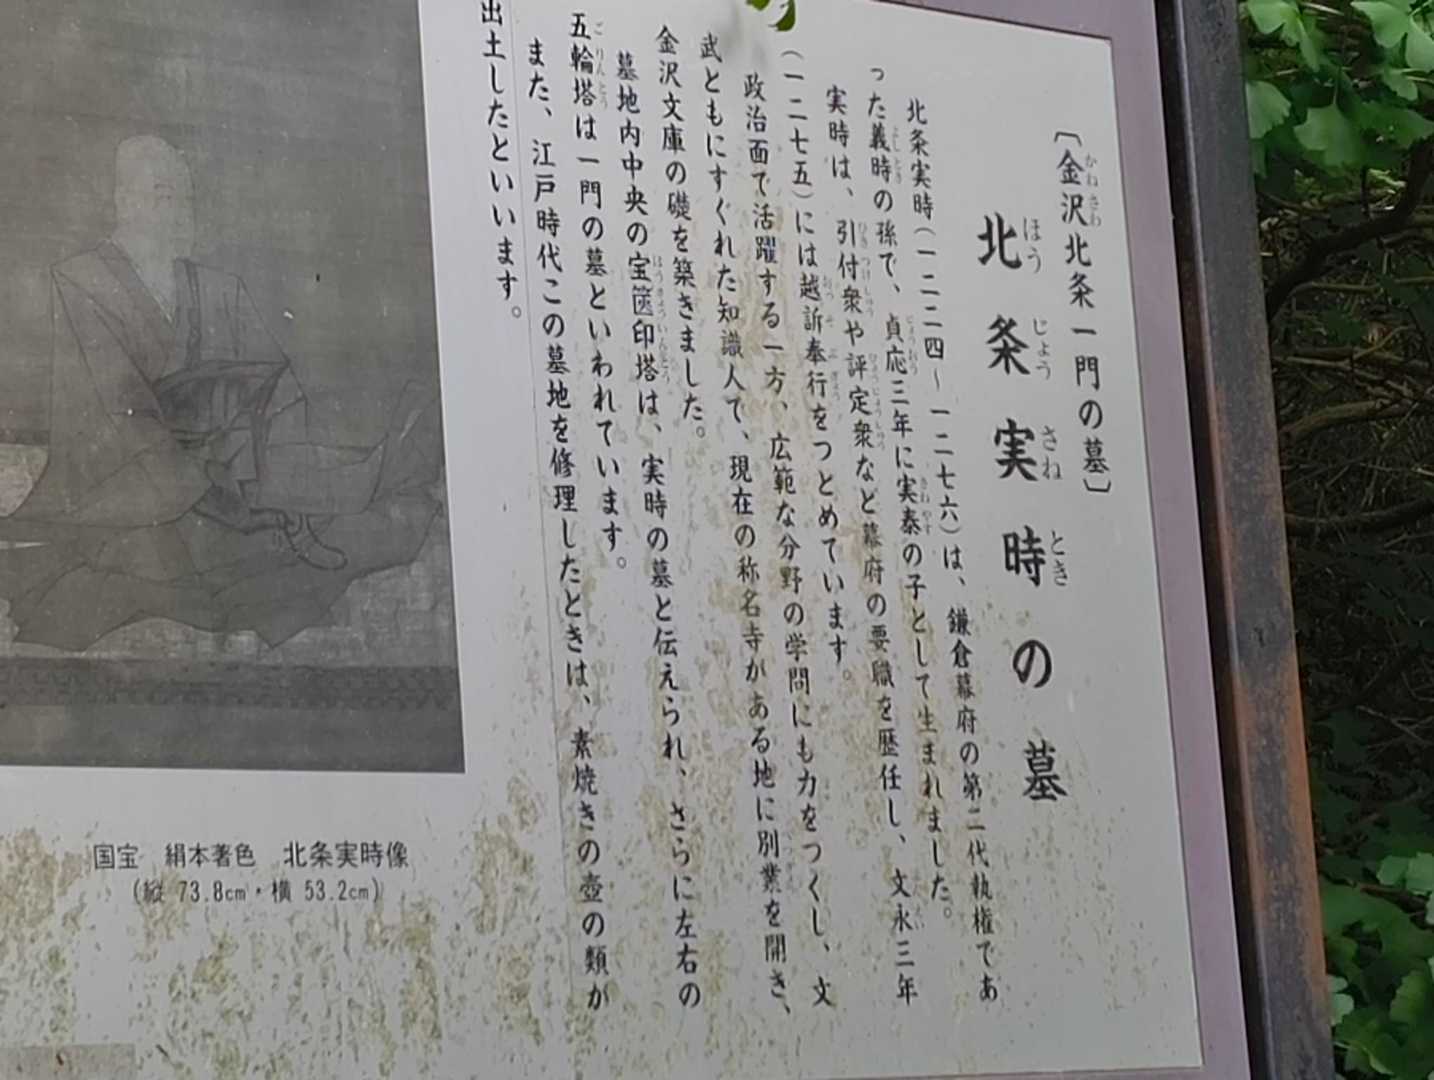 〔金沢北条一門の墓〕
北条実時の墓
北条実時(一二二四~一二七六)は、鎌倉幕府の第二代執権であ
った義時の孫で、貞応三年に実泰の子として生まれました。
実時は、引付衆や評定衆など幕府の要職を歴任し、文永三年
(一二七五)には越訴奉行をつとめています。
政治面で活躍する一方、広範な分野の学問にも力をつくし、文
武ともにすぐれた知識人で、現在の称名寺がある地に別業を開き、
金沢文庫の礎を築きました。
墓地内中央の宝篋印塔は、実時の墓と伝えられ、さらに左右の
五輪塔は一門の墓といわれています。
また、江戸時代この墓地を修理したときは、素焼きの壺の類が
出土したといいます。
国宝 絹本著色 北条実時像
(縦 73.8cm・横 53.2cm)